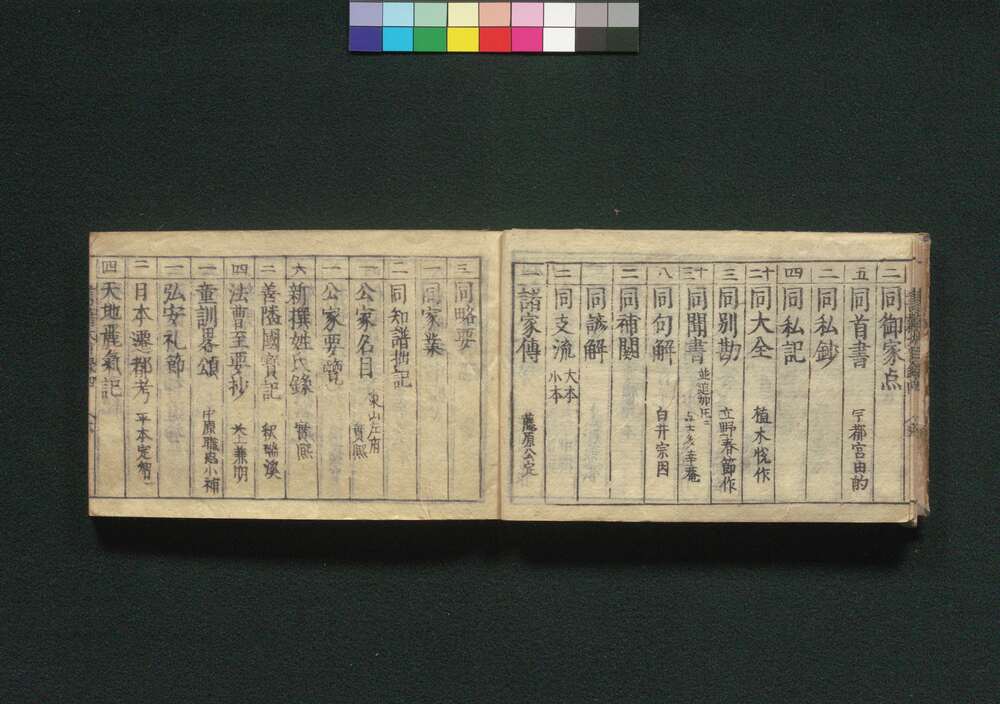 二 同御家点
五 同首書 宇都宮由的
二 同私鈔
四 同私記
二十 同大全 植木悦作
三 同別勘 立野春節作
三十 同聞書 並追加圧二
八 同句解 白井宗因
二 同補闕
同諺解
二 同支流 大本 小本
一 諸家傳 藤原公定
三 同略要
一 同家業
二 同知譜拙記
一 公家名目 東山左府 實熈
一 公家要覽
六 新撰姓氏録
二 善隣國寳記 釈瑞溪
四 法曹至要抄
一 童訓畧頌 中原職忠小補
一 弘安礼節
二 日本
四 天地麗氣記